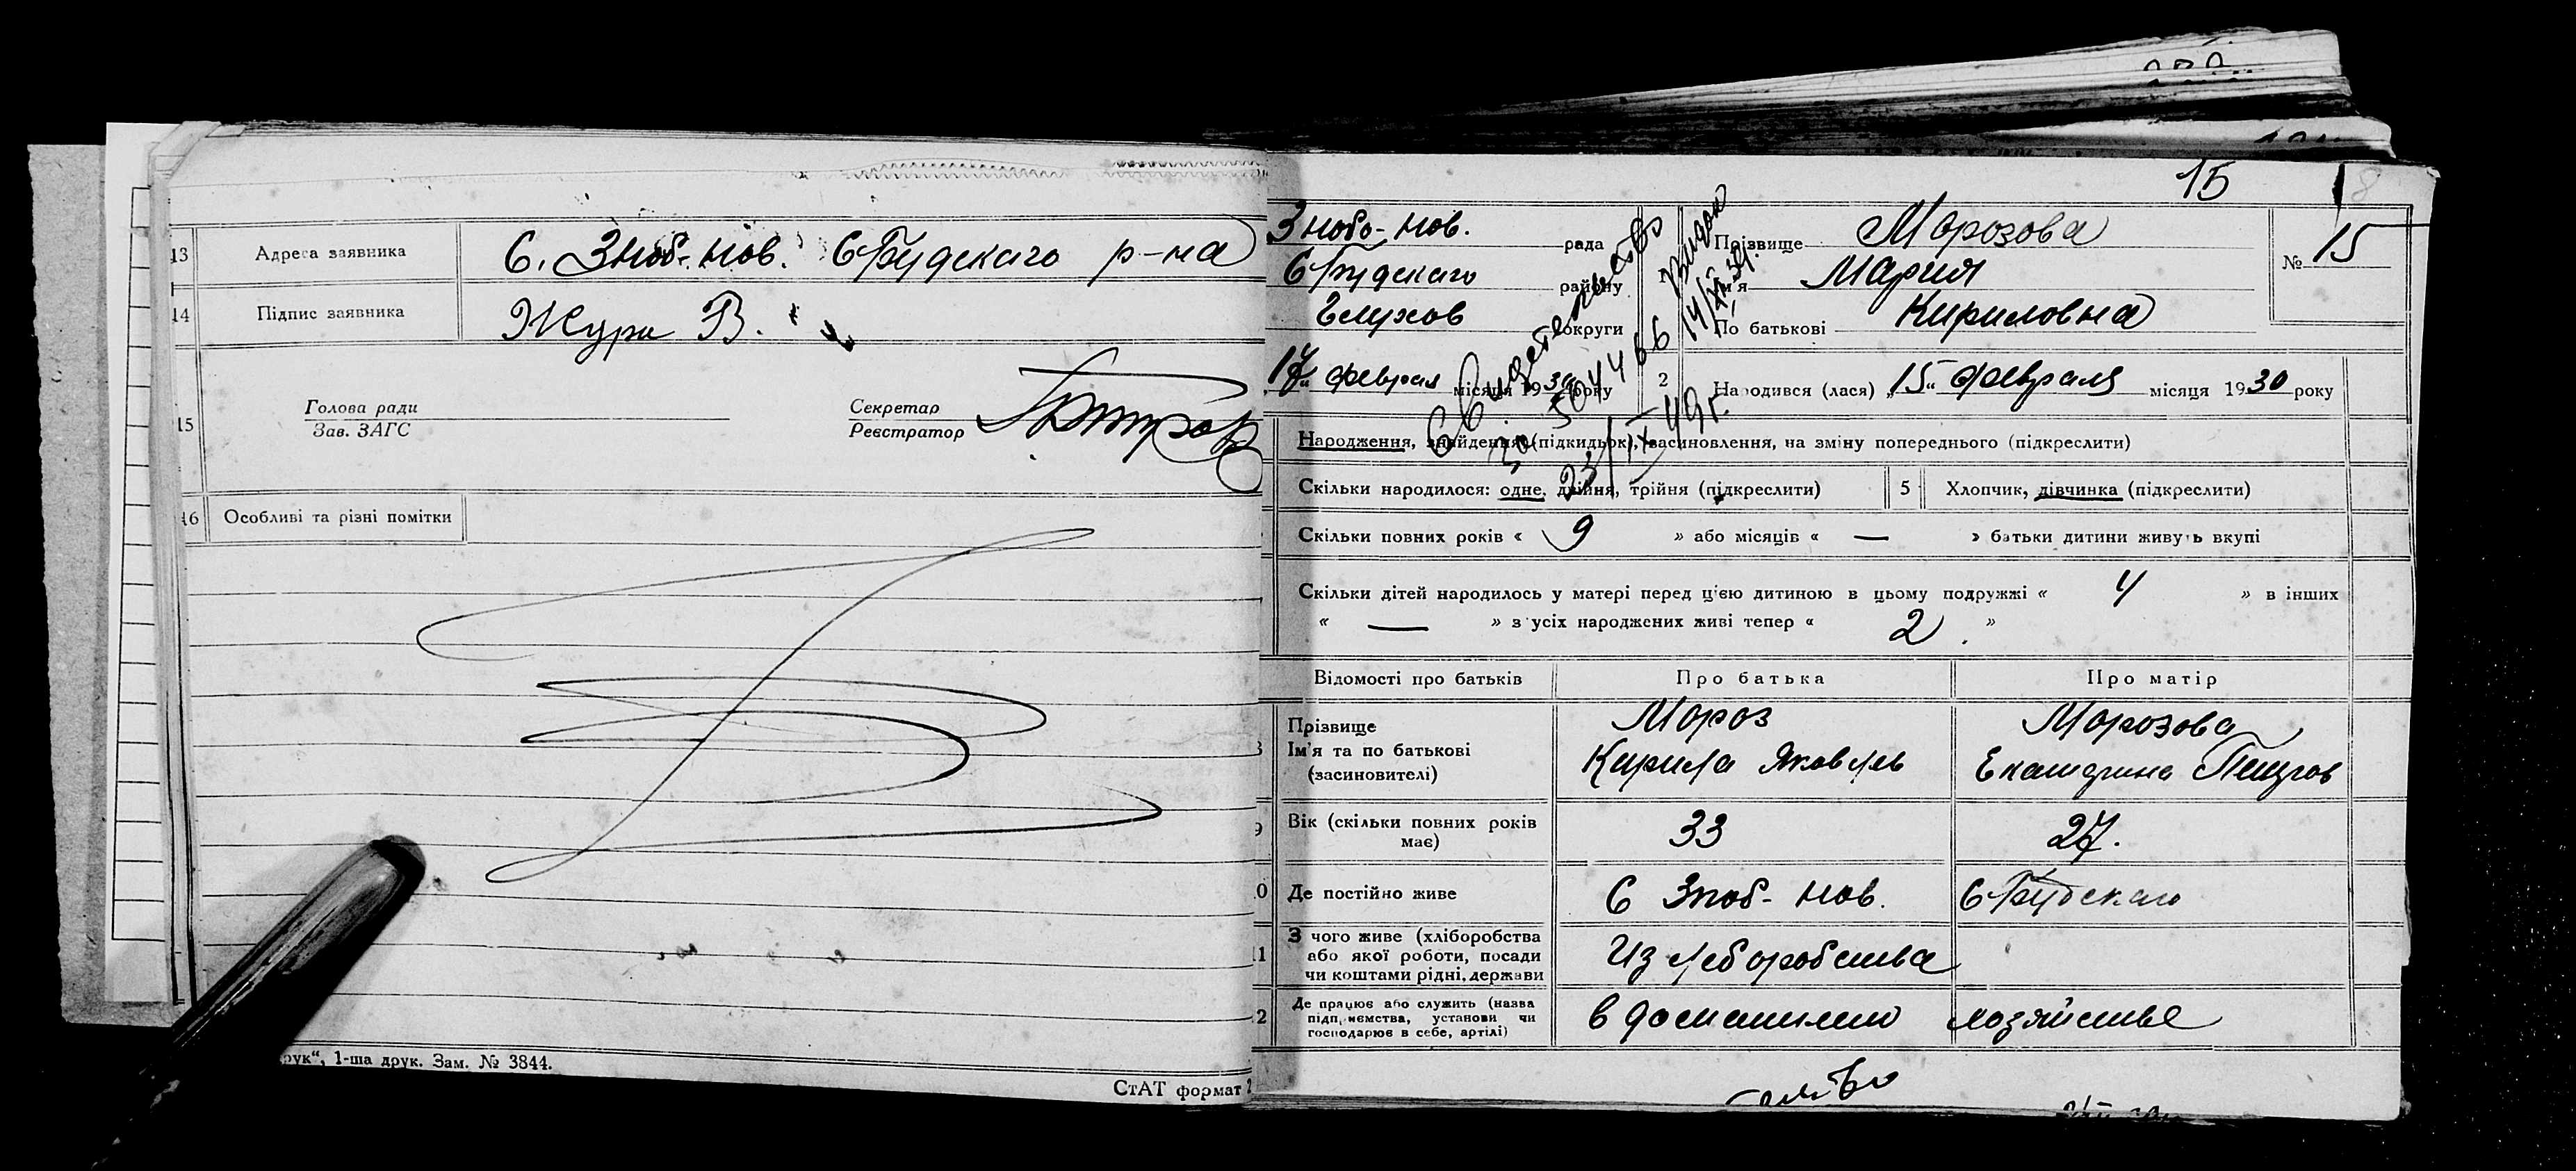 13 Адреса заявника С. Зноб. Нов. СБудскаго р-на
14 Підпис заявника Жура В.
15 Голова ради
Зав. ЗАГС
Секретар
Реєстратор
16 Особливі та різні помітки
рук", 1-ша друк. Зам. № 3844.
СтАТ формат 2
15
8
Зноб-Нов. рада
СБудскаго району
Глухов округи
17 феврал місяця 1930 року
Свидетельство
504466
23/IX 49 г.
1 Прізвище Морозова
Ім'я Мария
По батькові Кириловна
№ 15
2 Народився (лася) „15“ февраля місяця 1930 року
Народження, знайдення (підкидьок), засиновлення, на зміну попереднього (підкреслити)
Скільки народилося: одне, двійня, трійня (підкреслити) 5 Хлопчик, дівчинка (підкреслити)
Скільки повних років « 9 » або місяців « — » батьки дитини живуть вкупі
Скільки дітей народилось у матері перед цією дитиною в цьому подружжі « 4 » в інших
« — » з усіх народжених живі тепер « 2 . »
Відомості про батьків Про батька Про матір
Прізвище Мороз Морозова
Ім'я та по батькові Кирила Яковлев Екатерина
(засиновителі)
9 Вік (скільки повних років 33 27.
має)
0 Де постійно живе С Зноб- Нов. СБудскаго
З чого живе (хліборобства
11 або якої роботи, посади Из леборобства
чи коштами рідні, держави
Де працює або служить (назва
2 підприємства, установи чи в домашнем хозяйстве
господарює в себе, артілі)